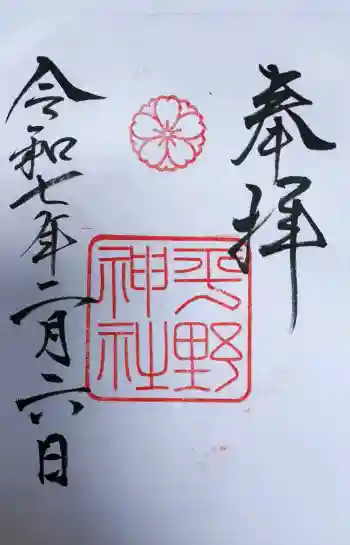 奉拝
平野
神社
令和七年二月二六日